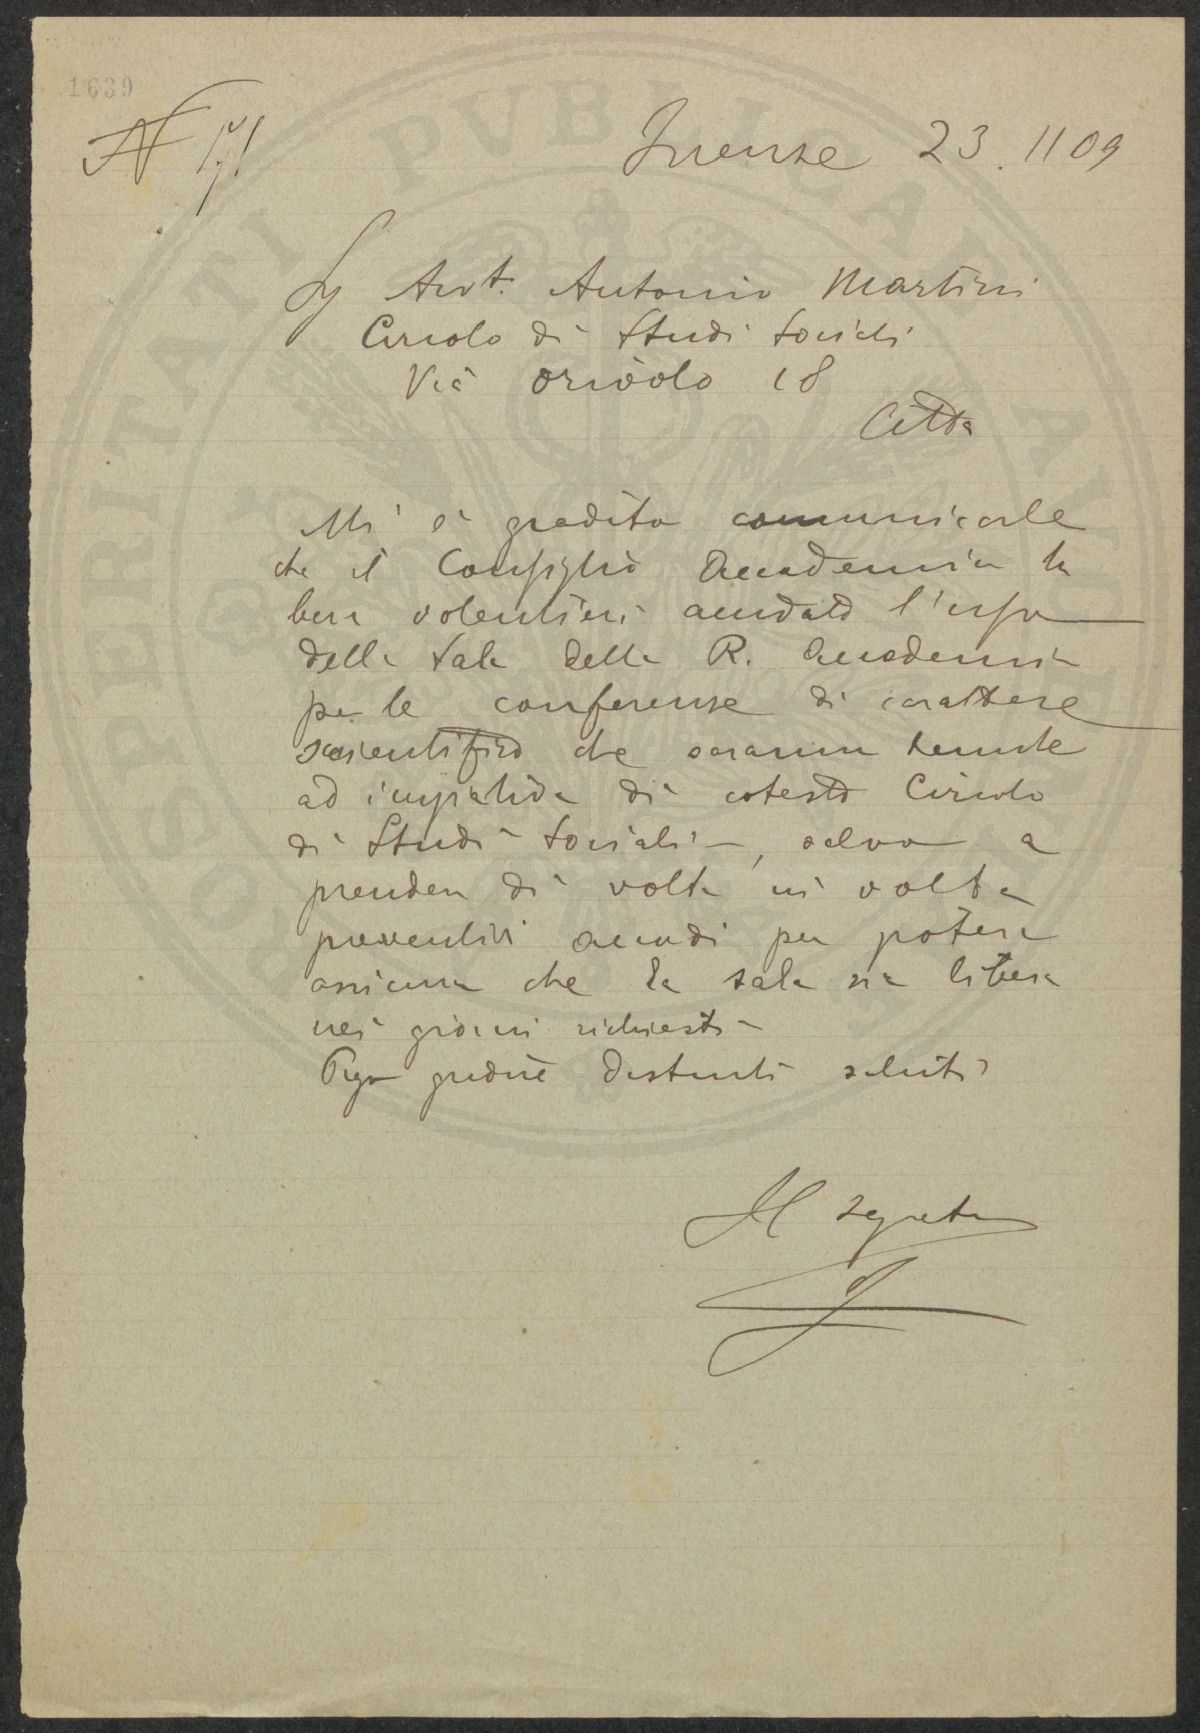 1639
N 171
Firenze 23. 11 09
Sg Avv. Antonio Martini
Circolo di Studi Sociali
Via Oriuolo 18
Città
Mi è gradito comunicarle
che il Consiglio Accademico ha
ben volentieri accordato l'uso
della sala della R. Accademia
per le conferenze di carattere
scientifico che saranno tenute
ad iniziativa di cotesto Circolo
di Studi Sociali, salvo a
prendere di volta in volta
preventivi accordi per potere
assicurare che la sala sia libera
nei giorni richiesti
Prego gradire distinti saluti
Il segretario
PVBLICAE
PROSPERITATI